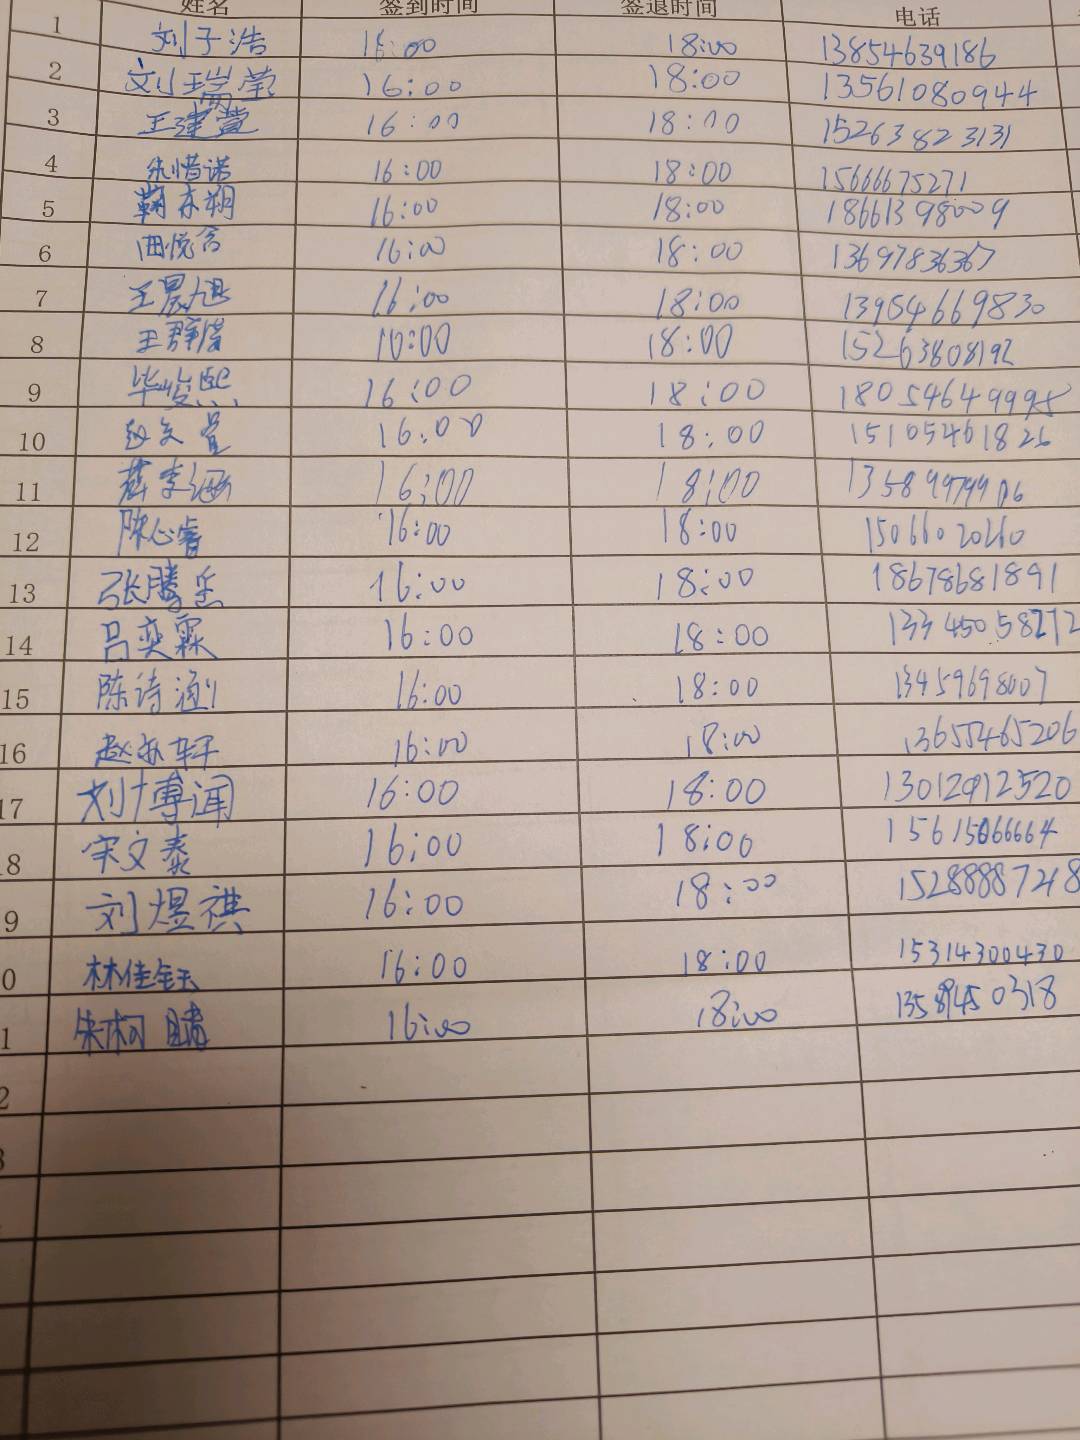 姓名 签到时间 签退时间 电话
1 刘子浩 16:00 18:00 13854639186
2 刘瑞莹 16:00 18:00 13561080944
3 王建萱 16:00 18:00 15263823131
4 朱惜诺 16:00 18:00 15666675271
5 鞠东朔 16:00 18:00 18661398009
6 田悦含 16:00 18:00 13697836367
7 王晨旭 16:00 18:00 13954669830
8 王群 10:00 18:00 15263808192
9 毕俊熙 16:00 18:00 18054649995
10 赵文 16:00 18:00 15105461826
11 李涵 16:00 18:00 13589979906
12 陈心睿 16:00 18:00 15066020260
13 张腾 16:00 18:00 18678681891
14 吕奕霖 16:00 18:00 13345058272
15 陈诗涵 16:00 18:00 13459698007
16 赵轩 16:00 18:00 13655465206
17 刘博闻 16:00 18:00 13012912520
8 宋文泰 16:00 18:00 15615066664
9 刘煜祺 16:00 18:00 15288887248
0 林佳钰 16:00 18:00 15314300430
1 朱柯晴 16:00 18:00 13589450318
2
3